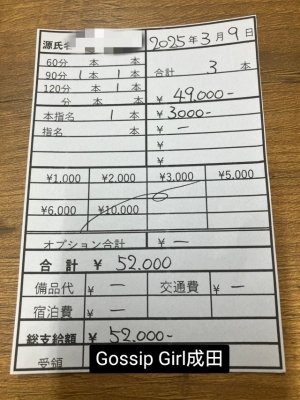 源氏名 2025年3月9日
60分 本 本
90分 1本 1本 合計 3 本
120分 1本 本
分 本 本 ¥ 49,000-
本指名 1 本 ¥ 3000-
指名 本 ¥ ー
¥
¥
¥1,000 ¥2,000 ¥3,000 ¥5,000
¥6,000 ¥10,000
オプション合計 ¥ ー
合計 ¥ 52,000
備品代 ¥ ー 交通費 ¥ ー
宿泊費 ¥ ー ¥
総支給額 ¥ 52,000-
受領
Gossip Girl成田